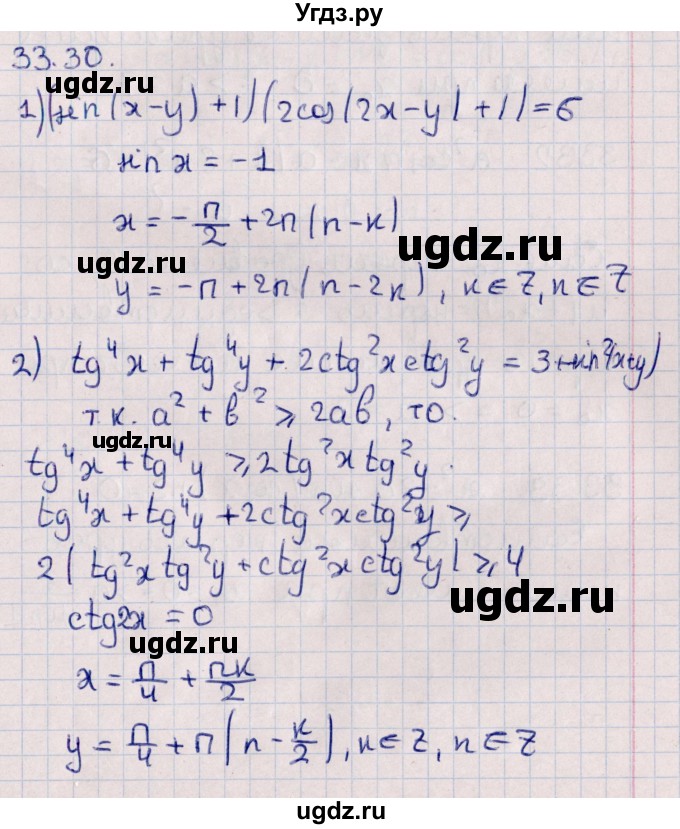 Угдз.ру
33.30.
ugdz.ru ugdz.ru
1) (sin(x-y)+1)(2cos(2x-y)+1)=6
sin x = -1
x = -π/2 + 2π(n-k)
ugdz.ru
ugdz.ru
y = -π + 2π(n-2k), k∈Z, n∈Z
2) tg⁴x + tg⁴y + 2ctg²xctg²y = 3+sin²(x+y)
т.к. a² + b² ⩾ 2ab, то.
ugdz.ru
tg⁴x + tg⁴y ⩾ 2tg²xtg²y.
tg⁴x + tg⁴y + 2ctg²xctg²y ⩾
2(tg²xtg²y + ctg²xctg²y) ⩾ 4
ugdz.ru
ctg2x = 0
ugdz.ru
x = π/4 + πk/2
y = π/4 + π(n - k/2), k∈Z, n∈Z
ugdz.ru
ugdz.ru